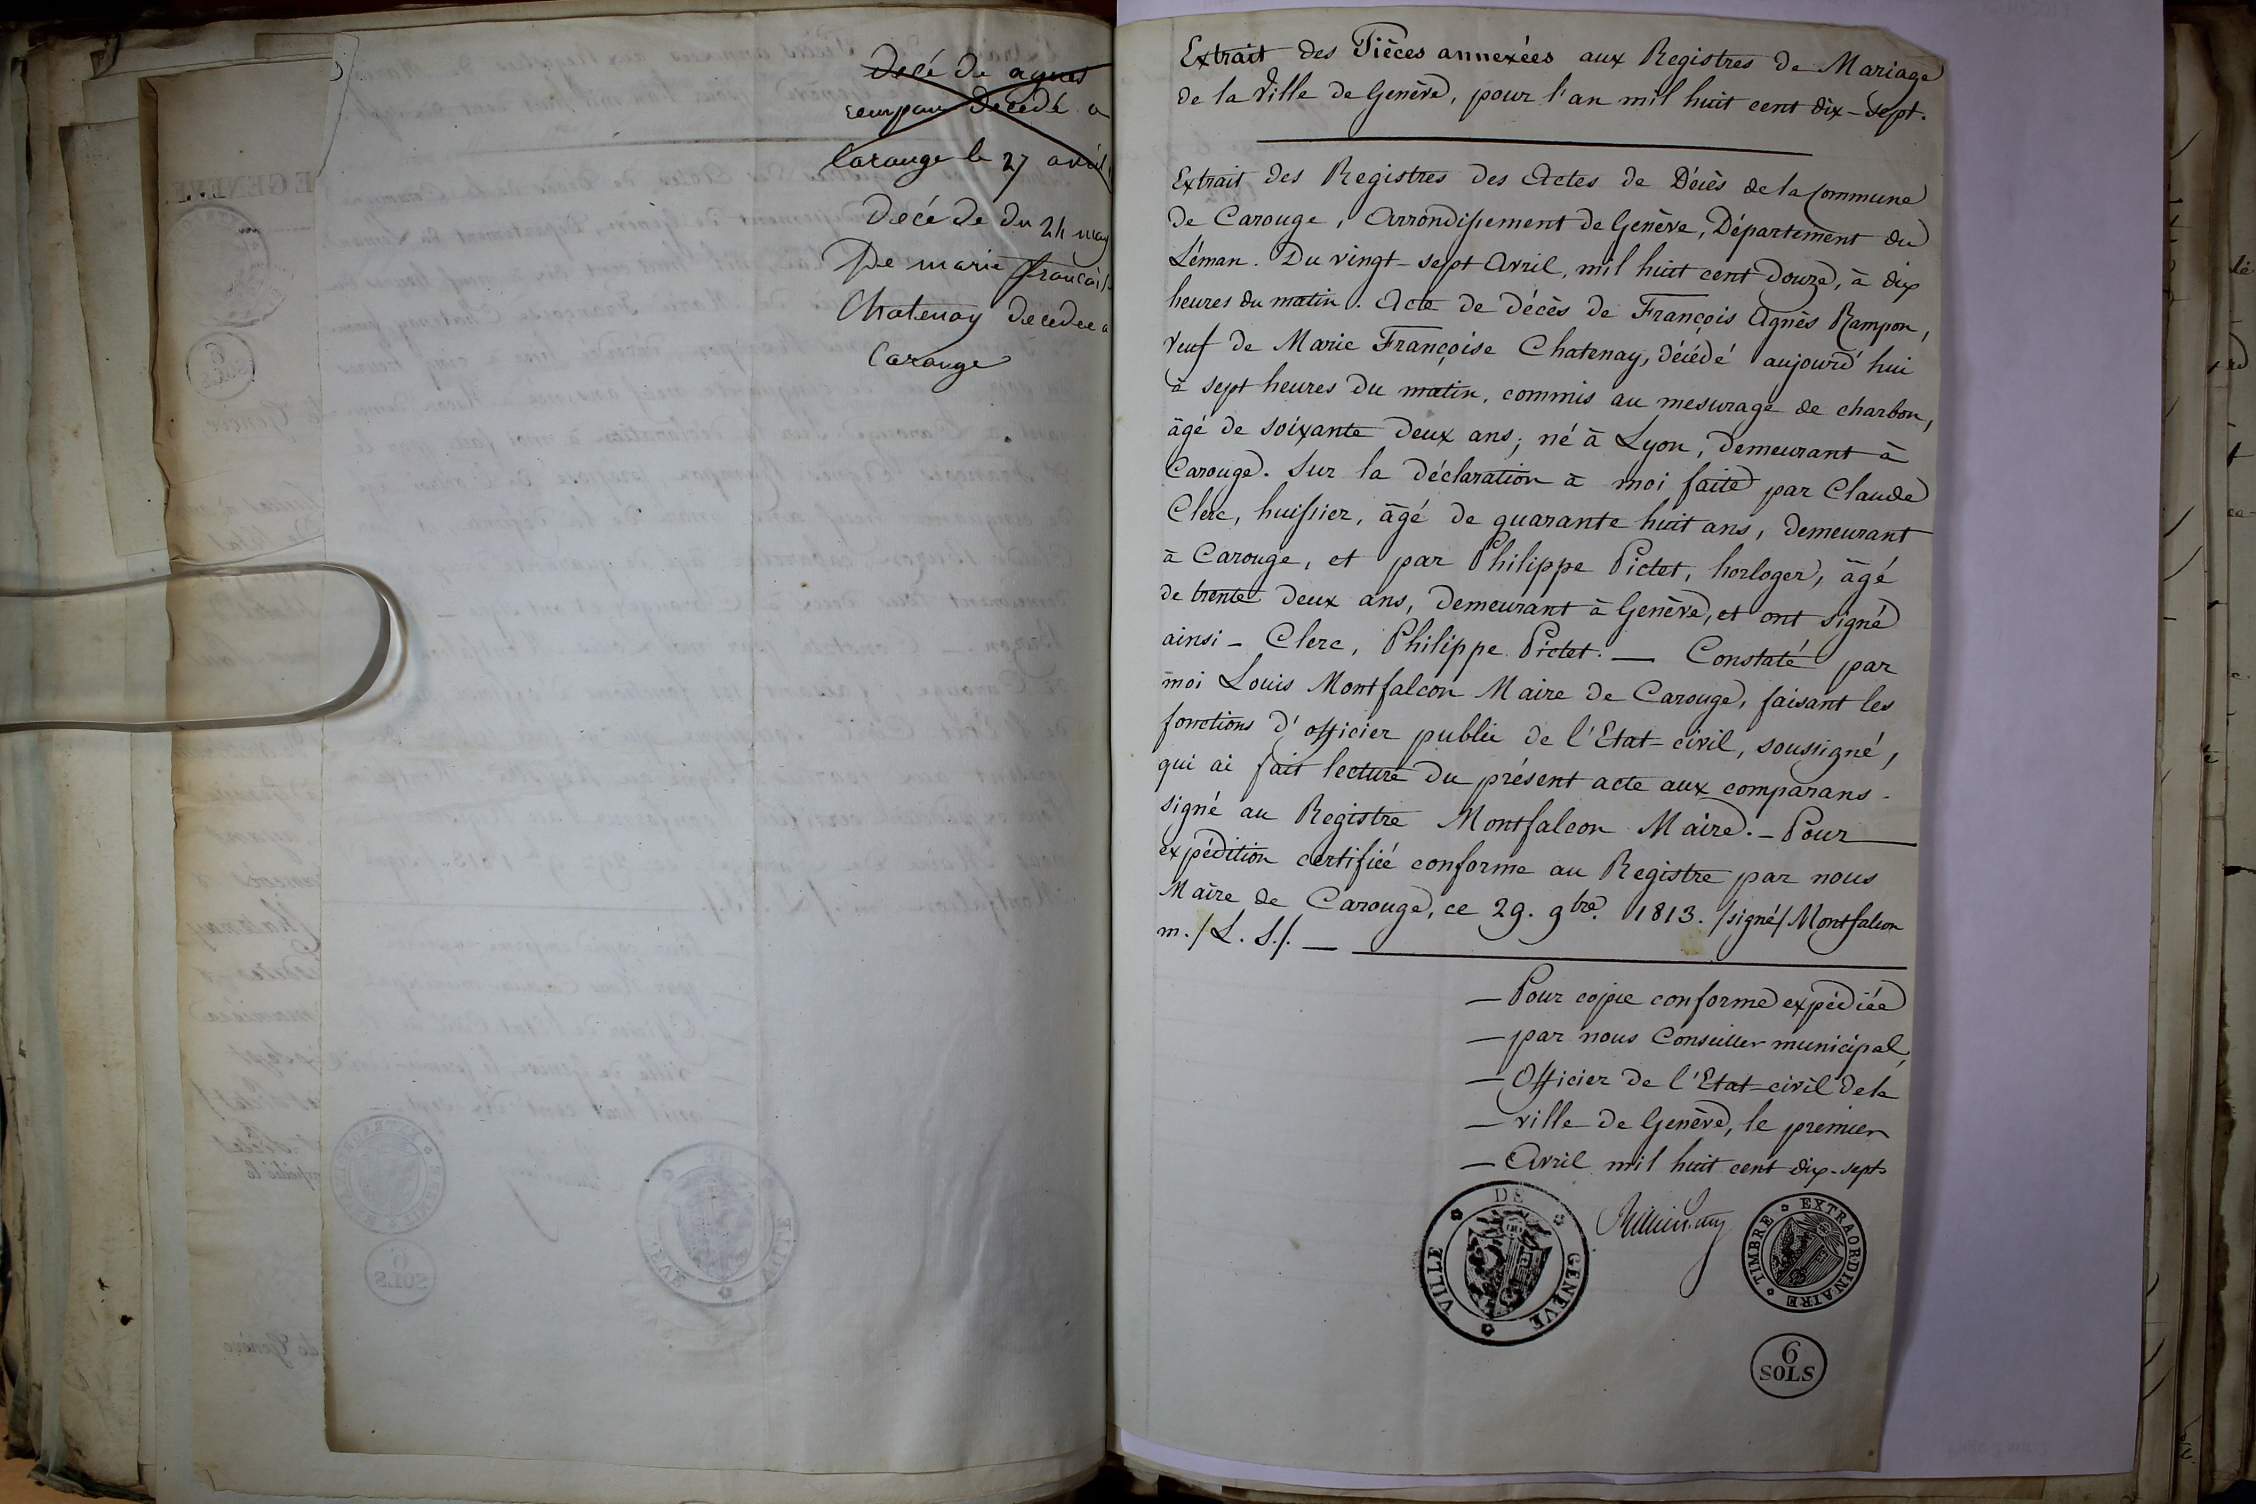 Decé de agnes
rempon Decedé a
Carouge le 27 avril
Decé de du 24 may
De marie françoise
Chatenay decedee a
Carouge
Extrait des Pièces annexées aux Registres de Mariage
de la Ville de Genève, pour l'an mil huit cent dix-sept.
Extrait des Registres des Actes de Décès de la Commune
de Carouge, Arrondissement de Genève, Département du
Léman. Du vingt-sept Avril, mil huit cent Douze, à dix
heures du matin. Acte de décès de François Agnès Rampon,
Veuf de Marie Françoise Chatenay, décédé aujourd'hui
à sept heures du matin, commis au mesurage de charbon,
âgé de soixante deux ans, né à Lyon, demeurant à
Carouge. Sur la déclaration à moi faite par Claude
Clerc, huissier, âgé de quarante huit ans, demeurant
à Carouge, et par Philippe Pictet, horloger, âgé
de trente deux ans, demeurant à Genève, et ont signé
ainsi - Clerc, Philippe Pictet. — Constaté par
moi Louis Montfalcon Maire de Carouge, faisant les
fonctions d'officier public de l'Etat-civil, soussigné,
qui ai fait lecture du présent acte aux comparans -
signé au Registre Montfalcon Maire. - Pour
expédition certifiée conforme au Registre par nous
Maire de Carouge, ce 29. 9bre. 1813. /signé/ Montfalcon
m. / L. S./. —
— Pour copie conforme expédiée
— par nous Conseiller municipal,
— Officier de l'Etat-civil de la
— ville de Genève, le premier
— Avril mil huit cent dix-sept
VILLE DE GENEVE
TIMBRE EXTRAORDINAIRE
6
SOLS